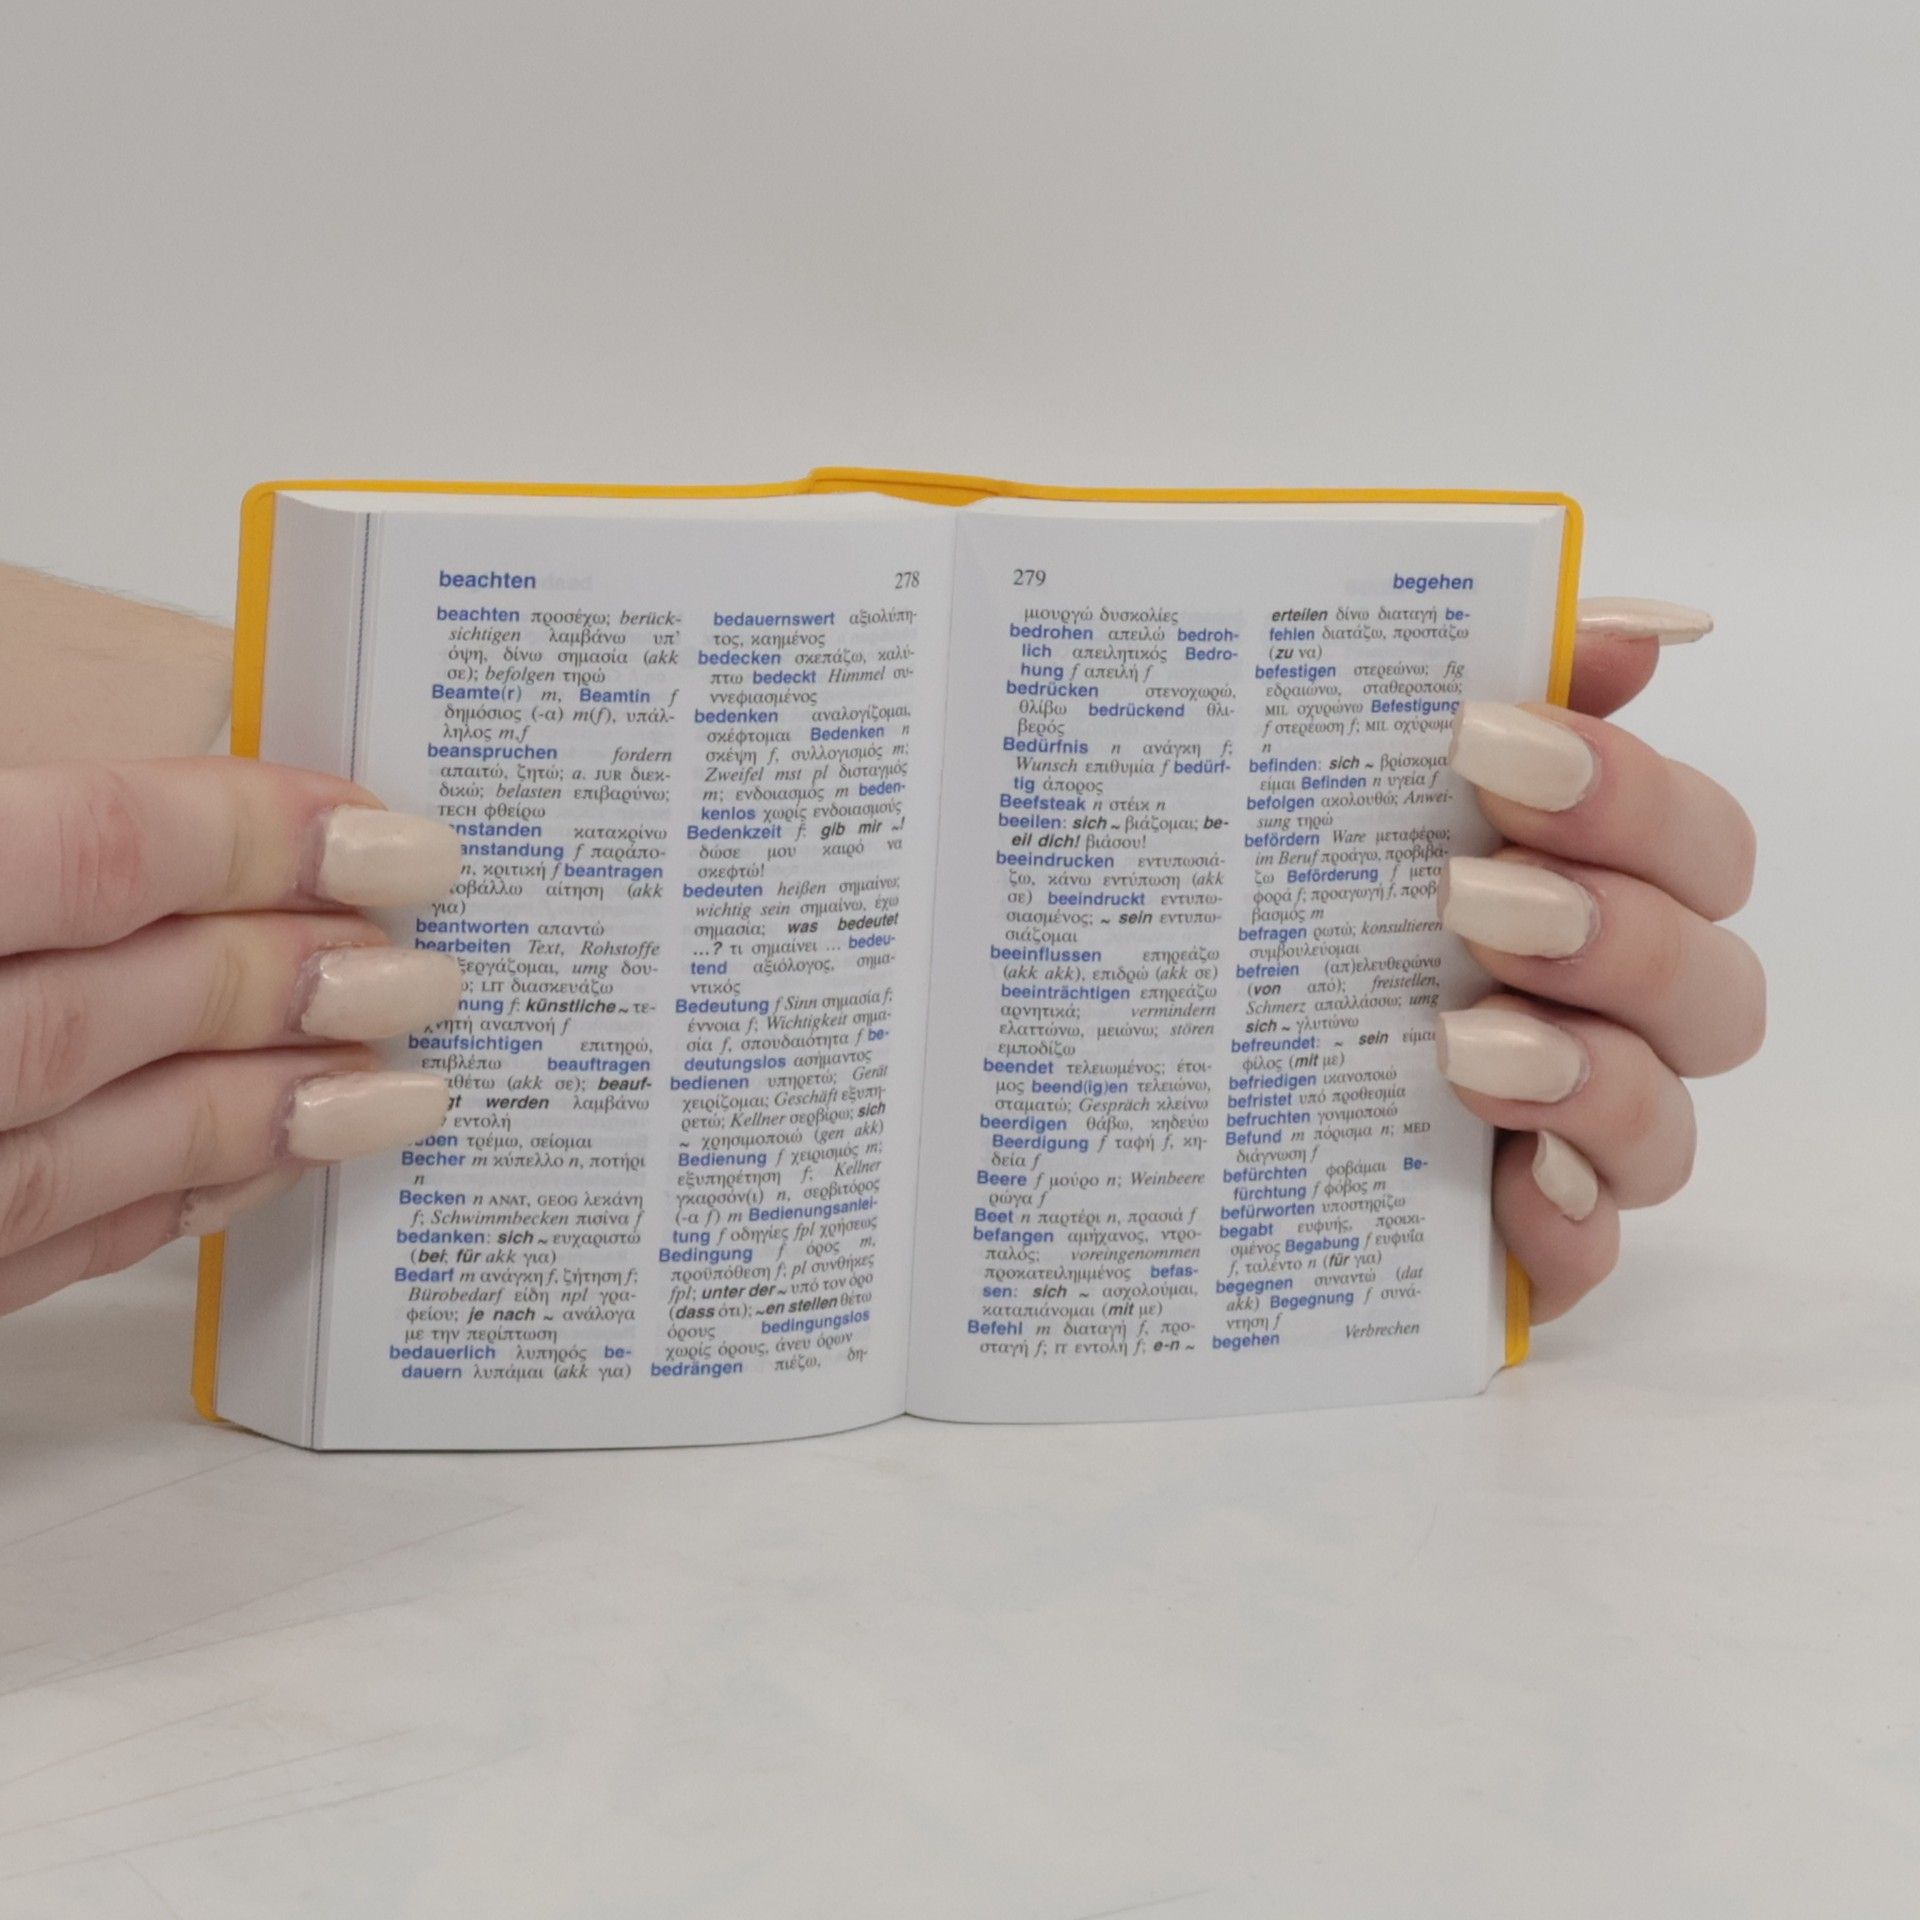 beachten
278
beachten προσέχω; berück-
sichtigen λαμβάνω υπ'
όψη, δίνω σημασία (akk
σε); befolgen τηρώ
Beamte(r) m, Beamtin f
δημόσιος (-α) m(f), υπάλ-
ληλος m,f
beanspruchen fordern
απαιτώ, ζητώ; a. JUR διεκ-
δικώ; belasten επιβαρύνω;
TECH φθείρω
nstanden κατακρίνω
anstandung f παράπο-
n, κριτική f beantragen
οβάλλω αίτηση (akk
για)
beantworten απαντώ
bearbeiten Text, Rohstoffe
ξεργάζομαι, umg δου-
LIT διασκευάζω
mung f: künstliche ~ τε-
χνητή αναπνοή f
beaufsichtigen επιτηρώ,
επιβλέπω beauftragen
αθέτω (akk σε); beauf-
gt werden λαμβάνω
εντολή
ben τρέμω, σείομαι
Becher m κύπελλο n, ποτήρι
n
Becken n ANAT, GEOG λεκάνη
f; Schwimmbecken πισίνα f
bedanken: sich ~ ευχαριστώ
(bei; für akk για)
Bedarf m ανάγκη f, ζήτηση f;
Bürobedarf είδη npl γρα-
φείου; je nach ~ ανάλογα
με την περίπτωση
bedauerlich λυπηρός be-
dauern λυπάμαι (akk για)
bedauernswert αξιολύπη-
τος, καημένος
bedecken σκεπάζω, καλύ-
πτω bedeckt Himmel συ-
ννεφιασμένος
bedenken αναλογίζομαι,
σκέφτομαι Bedenken n
σκέψη f, συλλογισμός m;
Zweifel mst pl δισταγμός
m; ενδοιασμός m beden-
kenlos χωρίς ενδοιασμούς
Bedenkzeit f: gib mir ~!
δώσε μου καιρό να
σκεφτώ!
bedeuten heißen σημαίνω;
wichtig sein σημαίνω, έχω
σημασία; was bedeutet
...? τι σημαίνει ... bedeu-
tend αξιόλογος, σημα-
ντικός
Bedeutung f Sinn σημασία f;
έννοια f; Wichtigkeit σημα-
σία f, σπουδαιότητα f be-
deutungslos ασήμαντος
bedienen υπηρετώ; Gerät
χειρίζομαι; Geschäft εξυπη-
ρετώ; Kellner σερβίρω; sich
~ χρησιμοποιώ (gen akk)
Bedienung f χειρισμός m;
εξυπηρέτηση f; Kellner
γκαρσόν(ι) n, σερβιτόρος
(-α f) m Bedienungsanlei-
tung f οδηγίες fpl χρήσεως
Bedingung f όρος m,
προϋπόθεση f; pl συνθήκες
fpl; unter der ~ υπό τον όρο
(dass ότι); ~en stellen θέτω
όρους bedingungslos
χωρίς όρους, άνευ όρων
bedrängen πιέζω, δη-
279
begehen
μιουργώ δυσκολίες
bedrohen απειλώ bedroh-
lich απειλητικός Bedro-
hung f απειλή f
bedrücken στενοχωρώ,
θλίβω bedrückend θλι-
βερός
Bedürfnis n ανάγκη f;
Wunsch επιθυμία f bedürf-
tig άπορος
Beefsteak n στέικ n
beeilen: sich ~ βιάζομαι; be-
eil dich! βιάσου!
beeindrucken εντυπωσιά-
ζω, κάνω εντύπωση (akk
σε) beeindruckt εντυπω-
σιασμένος; ~ sein εντυπω-
σιάζομαι
beeinflussen επηρεάζω
(akk akk), επιδρώ (akk σε)
beeinträchtigen επηρεάζω
αρνητικά; vermindern
ελαττώνω, μειώνω; stören
εμποδίζω
beendet τελειωμένος; έτοι-
μος beend(ig)en τελειώνω,
σταματώ; Gespräch κλείνω
beerdigen θάβω, κηδεύω
Beerdigung f ταφή f, κη-
δεία f
Beere f μούρο n; Weinbeere
ρώγα f
Beet n παρτέρι n, πρασιά f
befangen αμήχανος, ντρο-
παλός; voreingenommen
προκατειλημμένος befas-
sen: sich ~ ασχολούμαι,
καταπιάνομαι (mit με)
Befehl m διαταγή f, προ-
σταγή f; IT εντολή f; e-n ~
erteilen δίνω διαταγή be-
fehlen διατάζω, προστάζω
(zu να)
befestigen στερεώνω; fig
εδραιώνω, σταθεροποιώ;
MIL οχυρώνω Befestigung
f στερέωση f; MIL οχύρωμα
n
befinden: sich ~ βρίσκομα
είμαι Befinden n υγεία f
befolgen ακολουθώ; Anwei-
sung τηρώ
befördern Ware μεταφέρω;
im Beruf προάγω, προβιβά-
ζω Beförderung f μετα
φορά f; προαγωγή f, προβ
βασμός m
befragen ρωτώ; konsultieren
συμβουλεύομαι
befreien (απ)ελευθερώνω
(von από); freistellen,
Schmerz απαλλάσσω; umg
sich ~ γλυτώνω
befreundet: ~ sein είμαι
φίλος (mit με)
befriedigen ικανοποιώ
befristet υπό προθεσμία
befruchten γονιμοποιώ
Befund m πόρισμα n; MED
διάγνωση f
befürchten φοβάμαι Be-
fürchtung f φόβος m
befürworten υποστηρίζω
begabt ευφυής, προικι-
σμένος Begabung f ευφυΐα
f, ταλέντο n (für για)
begegnen συναντώ (dat
akk) Begegnung f συνά-
ντηση f
begehen Verbrechen